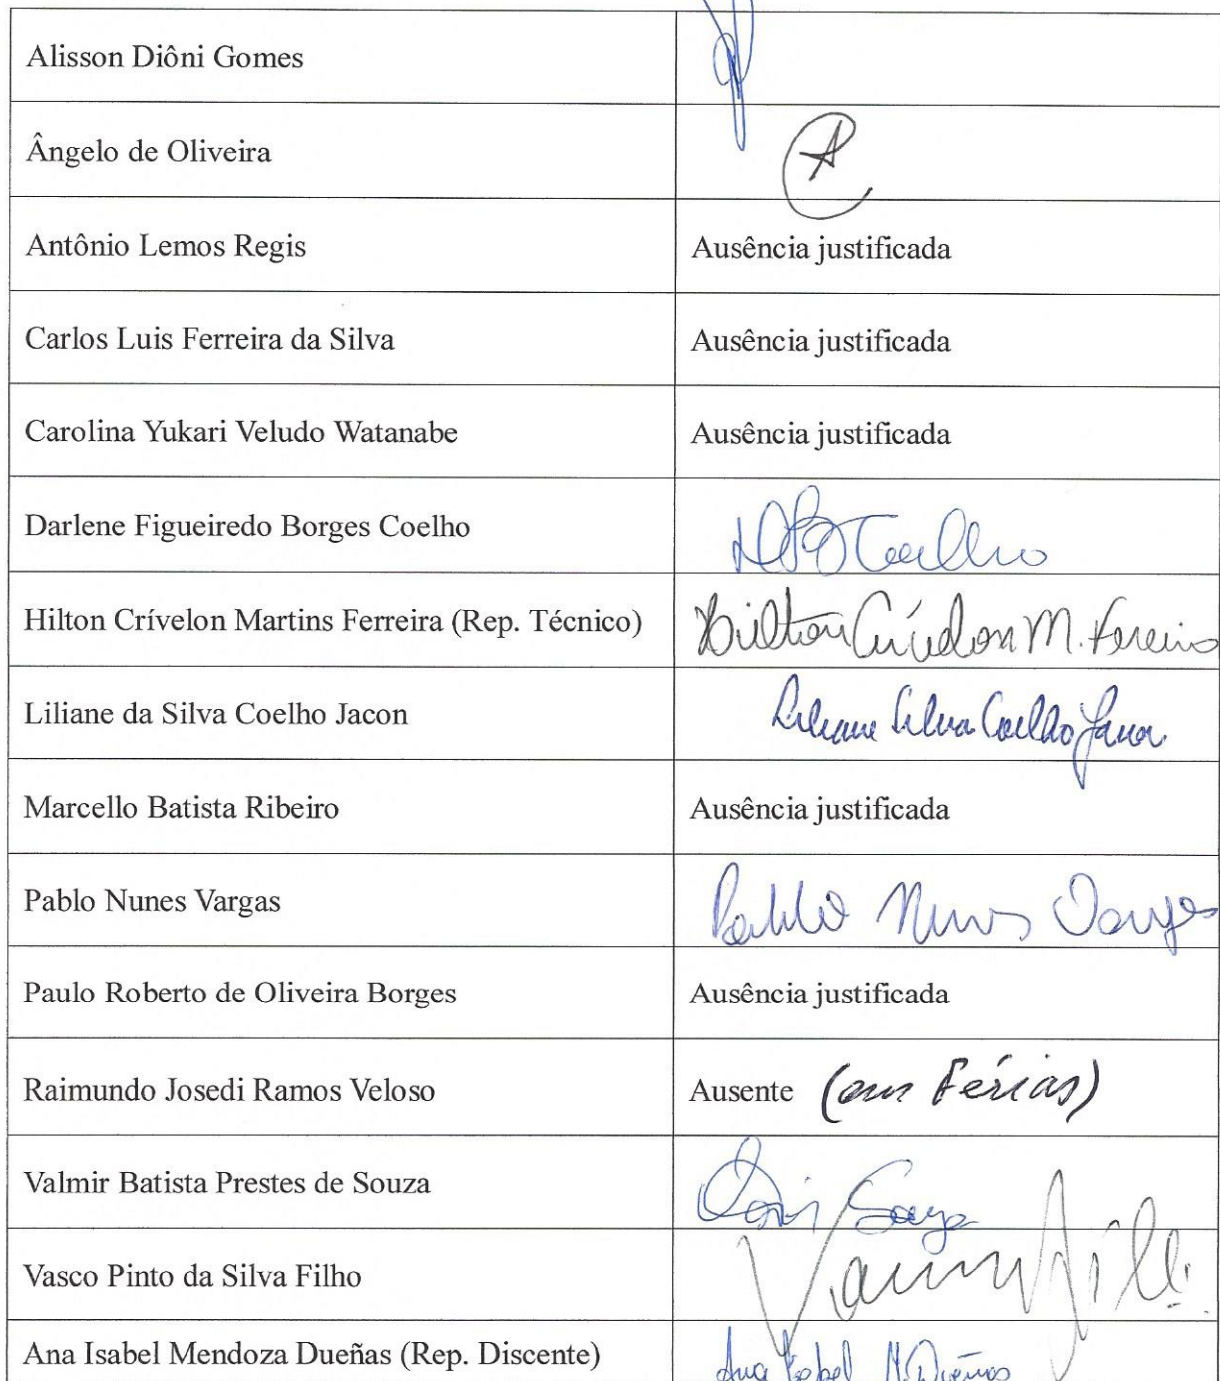 Alisson Diôni Gomes
Ângelo de Oliveira
Antônio Lemos Regis Ausência justificada
Carlos Luis Ferreira da Silva Ausência justificada
Carolina Yukari Veludo Watanabe Ausência justificada
Darlene Figueiredo Borges Coelho Coelho
Hilton Crívelon Martins Ferreira (Rep. Técnico) Hilton Crívelon M. Ferreira
Liliane da Silva Coelho Jacon Liliane Silva Coelho Jacon
Marcello Batista Ribeiro Ausência justificada
Pablo Nunes Vargas Pablo Nunes Vargas
Paulo Roberto de Oliveira Borges Ausência justificada
Raimundo Josedi Ramos Veloso Ausente (em Férias)
Valmir Batista Prestes de Souza Souza
Vasco Pinto da Silva Filho
Ana Isabel Mendoza Dueñas (Rep. Discente) Ana Isabel M. Dueñas